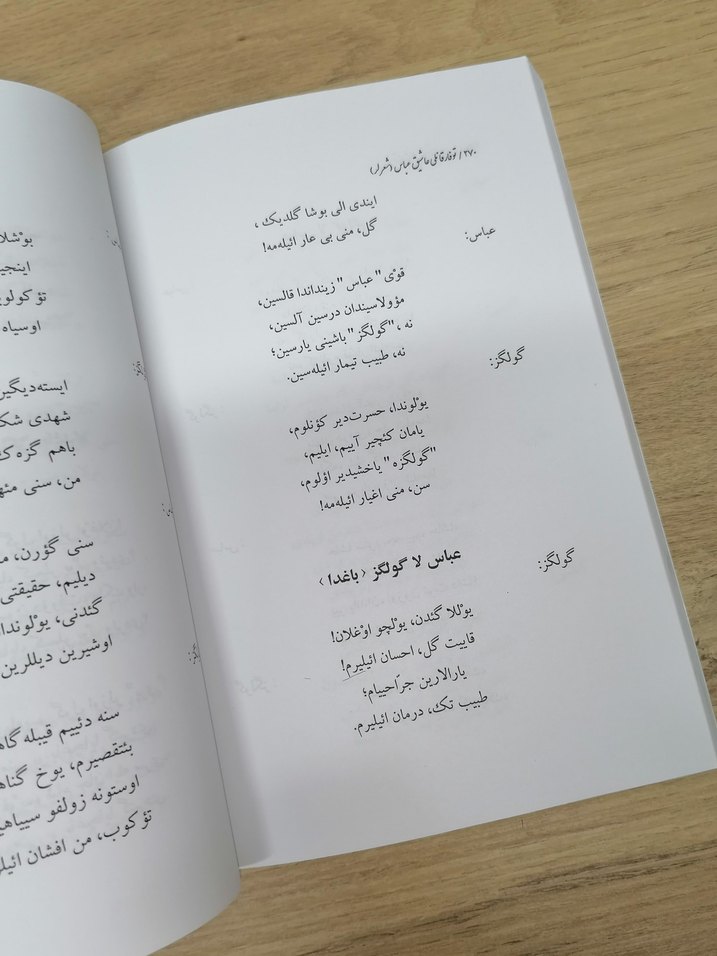 ۲۷۰ / توفارقانلی عاشیق عباس (شعرلر)
ایندی الی بوشا گلدیک ،
گل، منی بی عار ائیله‌مه!
عباس:
قوْی "عباس" زینداندا قالسین،
مؤولاسیندان درسین آلسین،
نه ، "گولگز" باشینی یارسین؛
نه، طبیب تیمار ائیله‌سین.
گولگز:
یوْلوندا، حسرت‌دیر کؤنلوم،
یامان کئچیر آییم، ایلیم،
"گولگزه" یاخشیدیر اؤلوم،
سن، منی اغیار ائیله‌مه!
عباس لا گولگز ‹باغدا›
گولگز:
یوْللا گئدن، یوْلچو اوْغلان!
قاییت گل، احسان ائیلیرم!
یارالارین جرّاحییام؛
طبیب تک، درمان ائیلیرم.
بوْشلا
اینجی
تؤکولو
اوسیاه
ایسته‌دیگیر
شهدی شک
باهم گزه‌ک
من، سنی مئه
سنی گؤرن، م
دیلیم، حقیقتی
گئدنی، یوْلوندا
اوشیرین دیللرین
سنه دئییم قیبله گاه
بئتقصیرم، یوخ گناه
اوستونه زولفو سییاهی
تؤکوب، من افشان ائیل